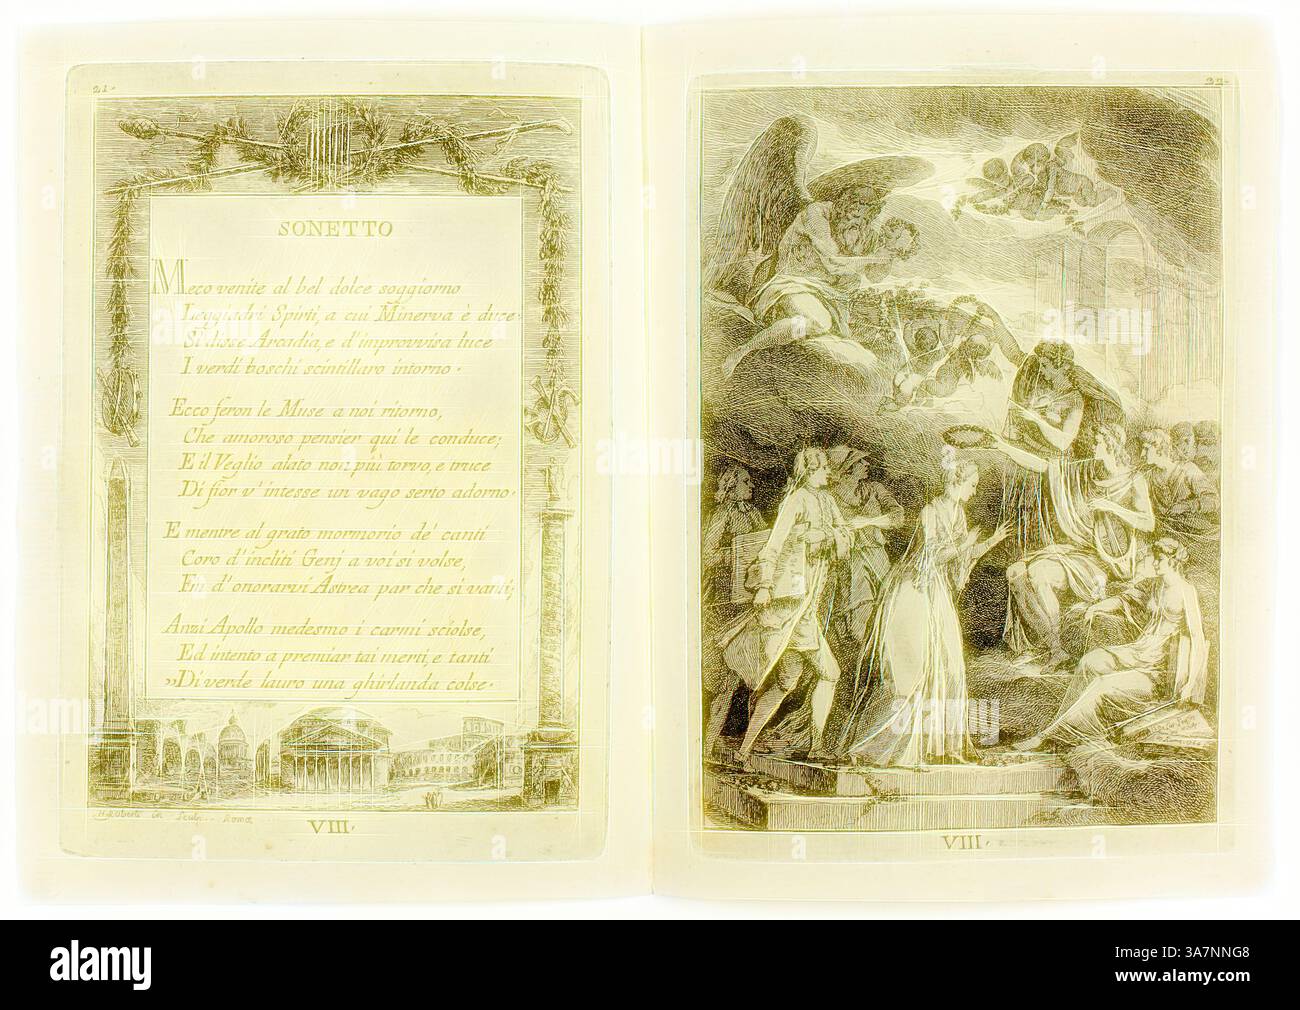 21.
SONETTO
Meco venite al bel dolce soggiorno
Leggiadri Spirti, a cui Minerva è duce.
Sì disse Arcadia, e d'improvvisa luce
I verdi boschi scintillaro intorno.
Ecco feron le Muse a noi ritorno,
Che amoroso pensier qui le conduce;
E il Veglio alato non più torvo, e truce
Di fior v'intesse un vago serto adorno.
E mentre al grato mormorio de' canti
Coro d'incliti Genj a voi si volse,
E u d'onorarvi Astrea par che si vanti;
Anzi Apollo medesmo i carmi sciolse,
Ed intento a premiar tai merti, e tanti
"Di verde lauro una ghirlanda colse.
H. Roberti in Sculp. Roma
VIII.
22.
VIII.
alamy
Image ID: 3A7NNG8
www.alamy.com